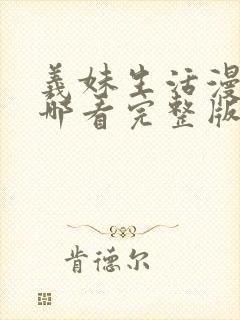 義妹生活漫
哪看完整版
肯德尔